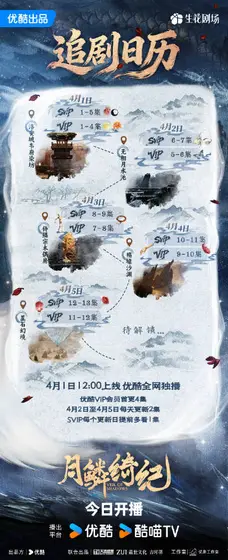 优酷出品
生花剧场
追剧日历
4月1日
SVIP 1-5集
VIP 1-4集
4月2日
SVIP 6-7集
VIP 5-6集
无相月水池
4月3日
SVIP 8-9集
VIP 7-8集
4月4日
SVIP 10-11集
VIP 9-10集
4月5日
SVIP 12-13集
VIP 11-12集
蓝石幻境
待解锁...
4月1日12:00上线 优酷全网独播
优酷VIP会员首更4集
4月2日至4月5日每天更新2集
SVIP每个更新日提前多看1集
月鳞绮纪
VEIL OF SHADOWS
今日开播
播出平台
优酷
酷喵TV
出品方
优酷
联合出品
工作室